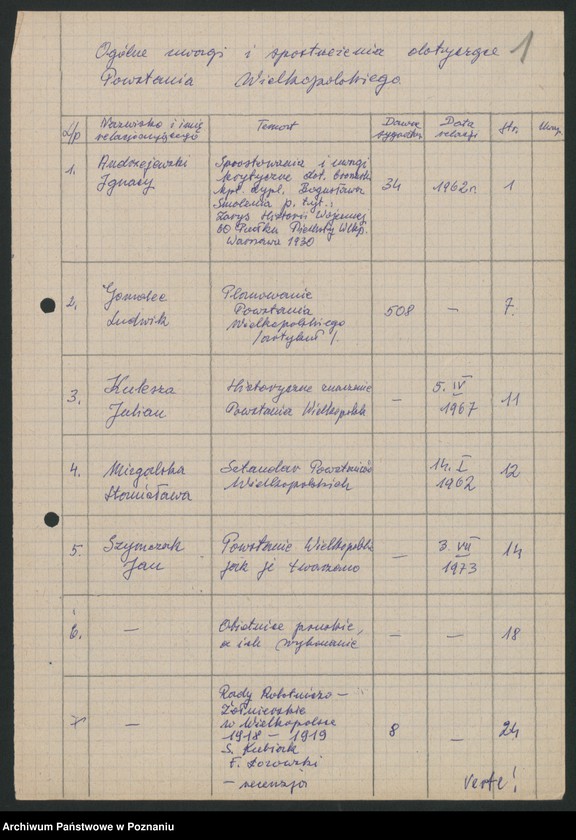 Ogólne uwagi i spostrzeżenia dotyczące 1
Powstania Wielkopolskiego
L/p Nazwisko i imię relacjonującego Temat Dawna sygnatura Data relacji Str. Uwag.
1. Andrzejewski Ignacy
Sprostowania i uwagi
krytyczne dot. broszurki
kpt. dypl. Bogusława
Smolenia p. tyt.:
Zarys Historii Wojennej
60 Pułku Piechoty Wlkp.
Warszawa 1930
34 1962 r. 1
2. Gomolec Ludwik
Planowanie
Powstania
Wielkopolskiego
/artykuł/.
508 — 7.
3. Kuksza Julian
Historyczne znaczenie
Powstania Wielkopolsk
— 5. IV 1967 11
4. Miegalska Stanisława
Sztandar Powstańców
Wielkopolskich
14. I 1962 12
5. Szymczak Jan
Powstanie Wielkopolskie
jak je tworzono
— 3. VII 1973 14
6. —
Obietnice pruskie,
a ich wykonanie
— — 18
7 —
Rady Robotniczo –
Żołnierskie
w Wielkopolsce
1918 – 1919
S. Kubiak
F. Łozowski
– recenzja
8 — 24
verte!
Archiwum Państwowe w Poznaniu